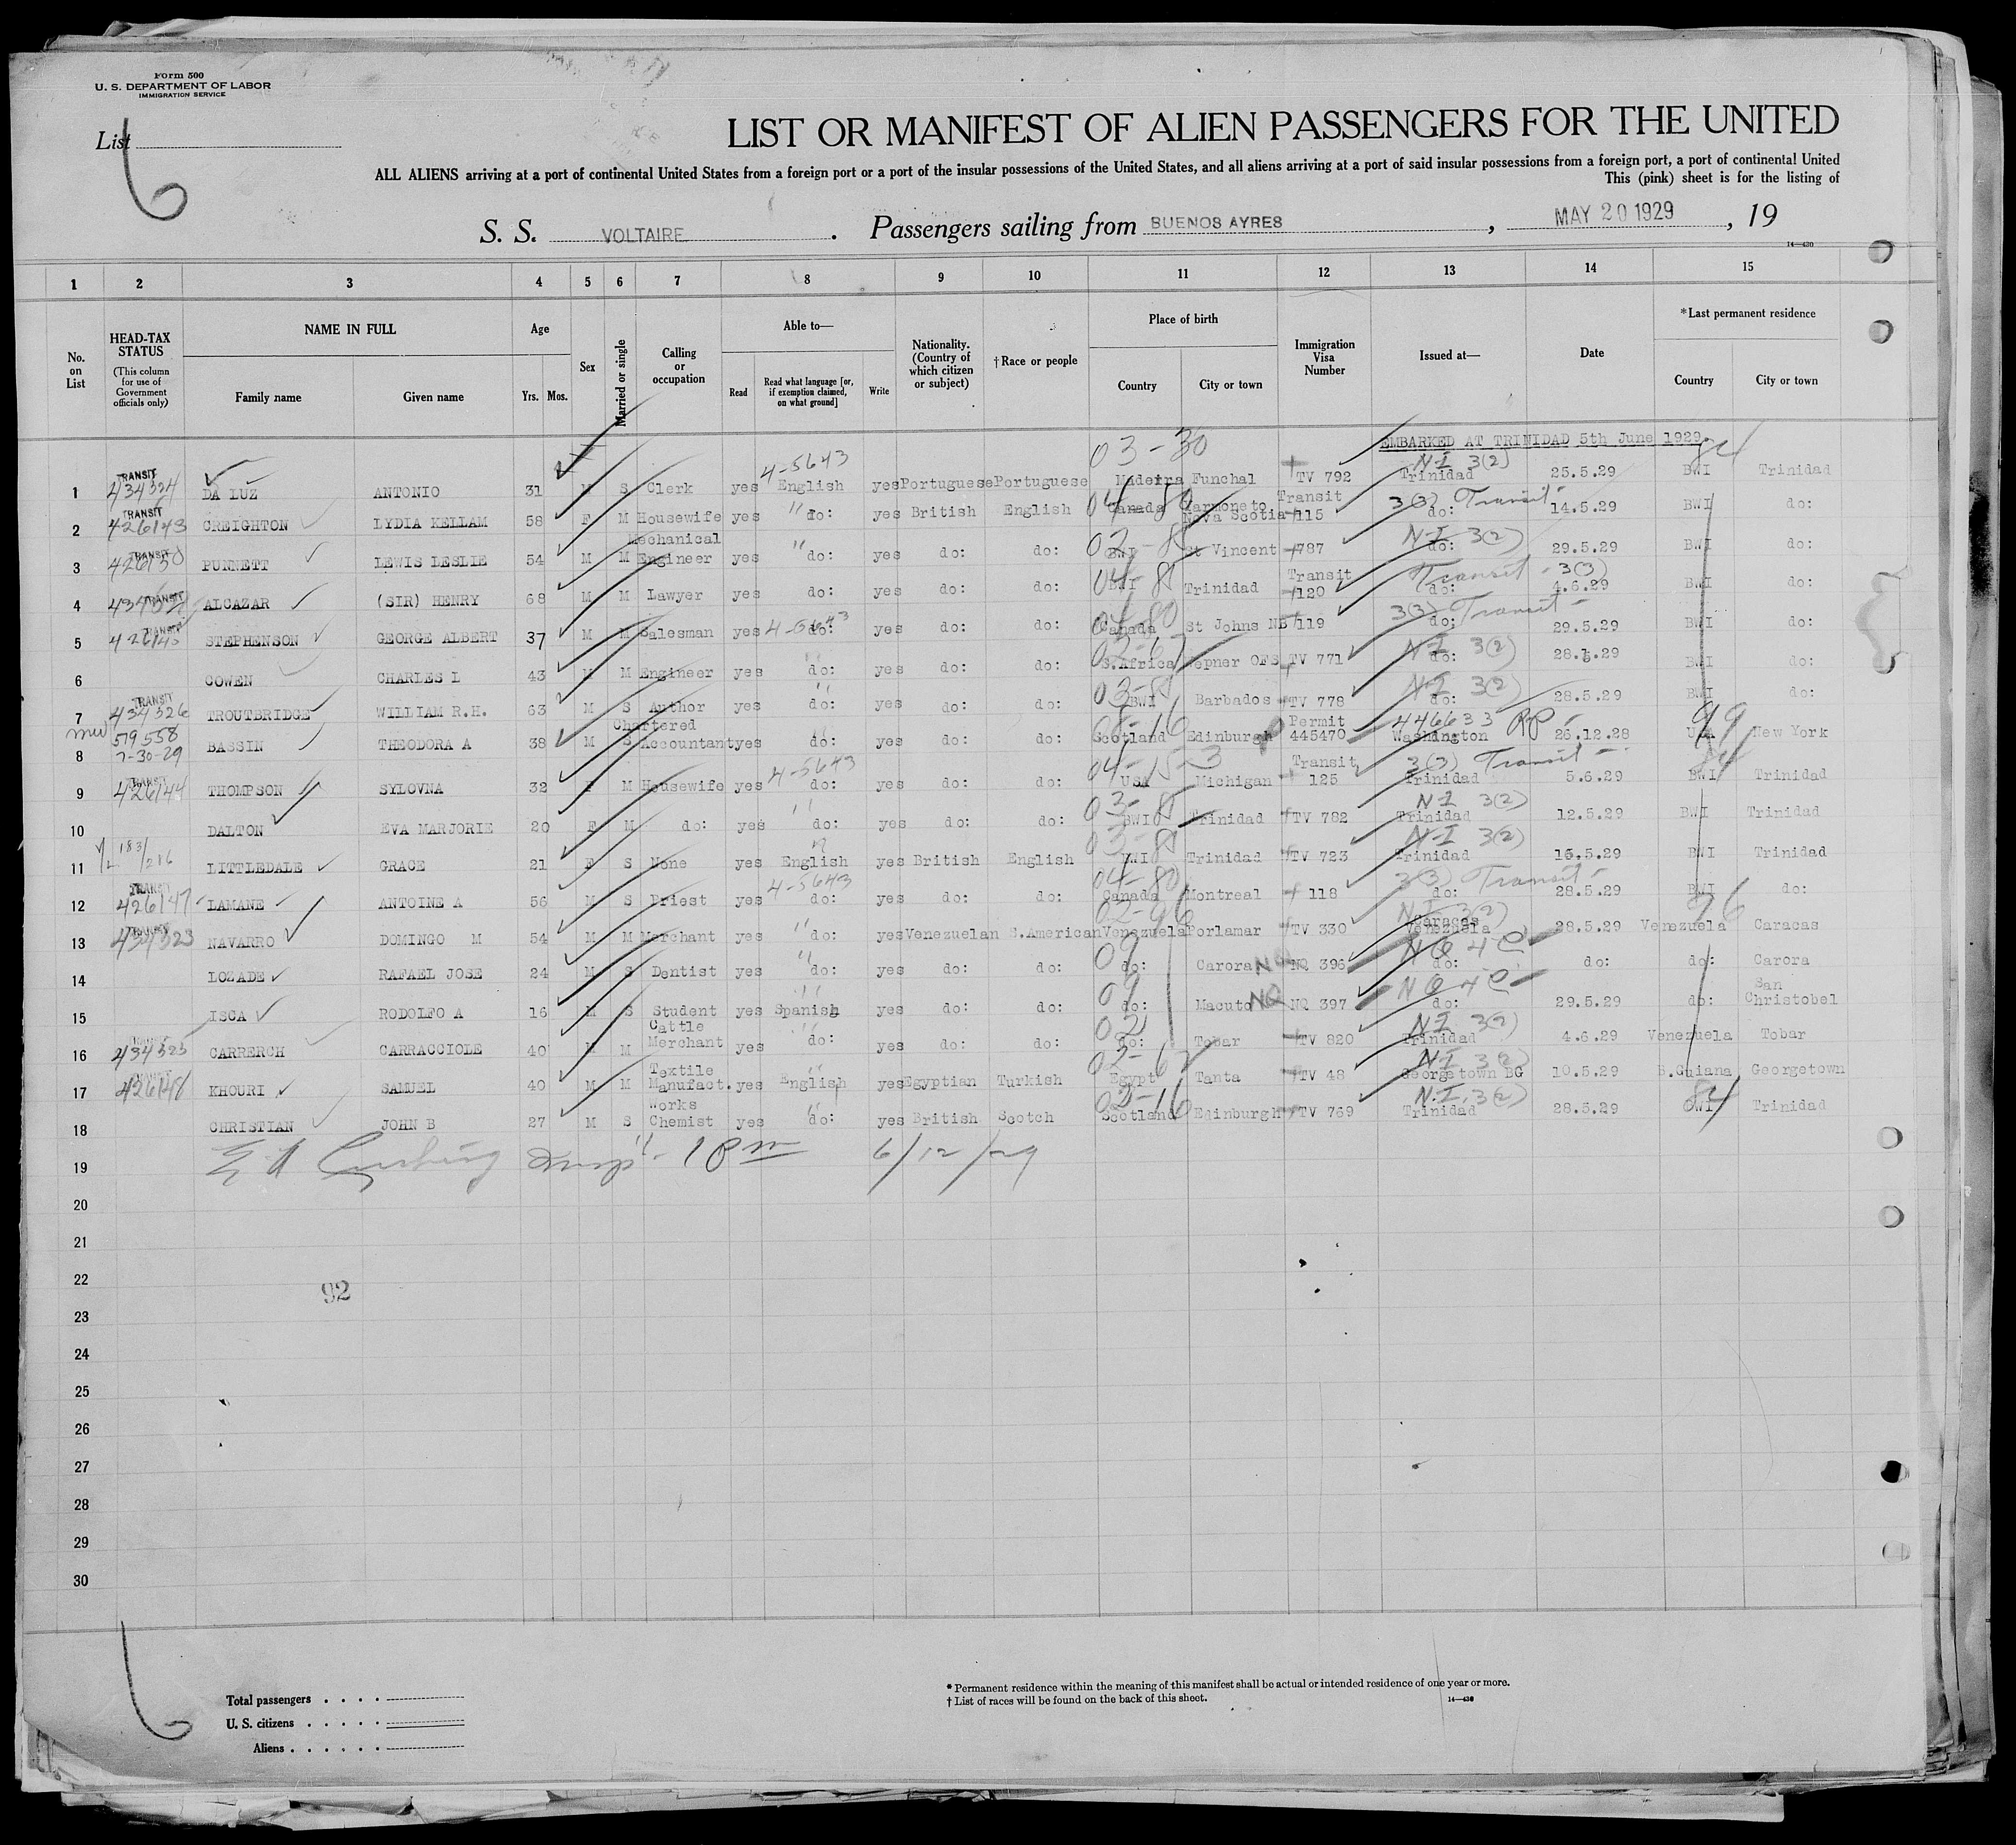 Form 500
U. S. DEPARTMENT OF LABOR
IMMIGRATION SERVICE
List 6
LIST OR MANIFEST OF ALIEN PASSENGERS FOR THE UNITED
ALL ALIENS arriving at a port of continental United States from a foreign port or a port of the insular possessions of the United States, and all aliens arriving at a port of said insular possessions from a foreign port, a port of continental United
This (pink) sheet is for the listing of
S. S. VOLTAIRE. Passengers sailing from BUENOS AYRES, MAY 20 1929, 19
14—430
1 2 3 4 5 6 7 8 9 10 11 12 13 14 15
No. on List
HEAD-TAX STATUS (This column for use of Government officials only)
NAME IN FULL Family name Given name
Age Yrs. Mos.
Sex
Married or single
Calling or occupation
Able to— Read Read what language [or, if exemption claimed, on what ground] Write
Nationality. (Country of which citizen or subject)
†Race or people
Place of birth Country City or town
Immigration Visa Number
Issued at—
Date
*Last permanent residence Country City or town
EMBARKED AT TRINIDAD 5th June 1929
03-30 4-5643 N-I 3(2)
1 TRANSIT 434324 DA LUZ ANTONIO 31 M S Clerk yes English yes Portuguese Portuguese Madeira Funchal TV 792 Trinidad 25.5.29 BWI Trinidad
2 TRANSIT 426143 CREIGHTON LYDIA KELLAM 58 F M Housewife yes do: yes British English Canada Nova Scotia Transit 115 3(3) Transit do: 14.5.29 BWI do:
3 TRANSIT 426150 PUNNETT LEWIS LESLIE 54 M M Mechanical Engineer yes do: yes do: do: BWI St Vincent 787 N-I 3(2) do: 29.5.29 BWI do:
4 TRANSIT ALCAZAR (SIR) HENRY 68 M M Lawyer yes do: yes do: do: BWI Trinidad Transit 120 Transit 3(3) do: 4.6.29 BWI do:
5 TRANSIT STEPHENSON GEORGE ALBERT 37 M M Salesman yes 4-5643 do: yes do: do: Canada St Johns NB 119 3(3) Transit do: 29.5.29 BWI do:
6 COWEN CHARLES L 43 M M Engineer yes do: yes do: do: S.Africa Wepner OFS TV 771 N-I 3(2) do: 28.5.29 BWI do:
7 TRANSIT 434326 TROUTBRIDGE WILLIAM R.H. 63 M S Author yes do: yes do: do: BWI Barbados TV 778 N-I 3(2) do: 28.5.29 BWI do:
8 579558 7-30-29 BASSIN THEODORA A 38 M S Chartered Accountant yes do: yes do: do: Scotland Edinburgh Permit 445470 446633 RP Washington 26.12.28 USA New York 99
9 TRANSIT 426144 THOMPSON SYLOVNA 32 F M Housewife yes 4-5643 do: yes do: do: USA Michigan Transit 125 3(3) Transit Trinidad 5.6.29 BWI Trinidad
10 DALTON EVA MARJORIE 20 F M do: yes do: yes do: do: BWI Trinidad TV 782 N-I 3(2) Trinidad 12.5.29 BWI Trinidad
11 LITTLEDALE GRACE 21 F S None yes English yes British English BWI Trinidad TV 723 N-I 3(2) Trinidad 15.5.29 BWI Trinidad
12 TRANSIT 426147 LAMANE ANTOINE A 56 M S Priest yes 4-5643 do: yes do: do: Canada Montreal 118 3(3) Transit do: 28.5.29 BWI do:
13 TRANSIT 434323 NAVARRO DOMINGO M 54 M M Merchant yes do: yes Venezuelan S.American Venezuela Porlamar TV 330 N I 3(2) Caracas Venezuela 28.5.29 Venezuela Caracas
14 LOZADE RAFAEL JOSE 24 M S Dentist yes do: yes do: do: do: Carora NQ NQ 396 NQ 4 C do: do: do: Carora
15 ISCA RODOLFO A 16 M S Student yes Spanish yes do: do: do: Macuto NQ NQ 397 NQ 4 C do: 29.5.29 do: San Christobel
16 434325 CARRERCH CARRACCIOLE 40 M M Cattle Merchant yes do: yes do: do: do: Tobar TV 820 N-I 3(2) Trinidad 4.6.29 Venezuela Tobar
17 426148 KHOURI SAMUEL 40 M M Textile Manufact. yes English yes Egyptian Turkish Egypt Tanta TV 48 N-I 3(2) Georgetown BG 10.5.29 B.Guiana Georgetown
18 CHRISTIAN JOHN B 27 M S Works Chemist yes do: yes British Scotch Scotland Edinburgh TV 769 N.I. 3(2) Trinidad 28.5.29 BWI Trinidad
19 Insp. 1 Pm 6/12/29
20
21
22
92
23
24
25
26
27
28
29
30
Total passengers . . . .
U. S. citizens . . . . .
Aliens . . . . . .
* Permanent residence within the meaning of this manifest shall be actual or intended residence of one year or more.
† List of races will be found on the back of this sheet.
14—430